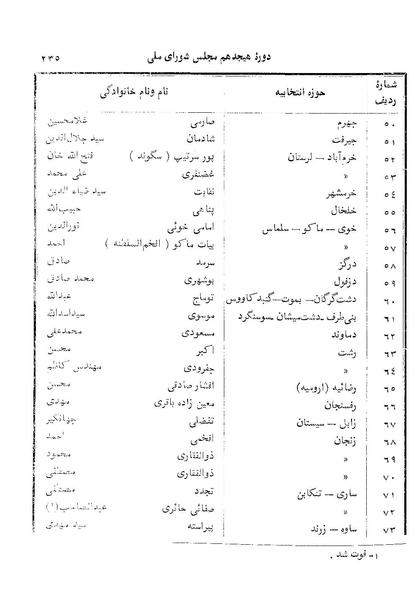 دورهٔ هیجدهم مجلس شورای ملی ۲۳۵
شمارهٔ ردیف حوزه انتخابیه نام ونام خانوادگی
۵۰ جهرم صارمی غلامحسین
۵۱ جیرفت شادمان سید جلال‌الدین
۵۲ خرم‌آباد – لرستان پور سرتیپ ( سگوند ) فتح الله خان
۵۳ » غضنفری علی محمد
۵٤ خرمشهر نقابت سید ضیاء الدین
۵۵ خلخال پناهی حبیب‌الله
۵۶ خوی – ماکو – سلماس امامی خوئی نورالدین
۵۷ » بیات ماکو ( افخم‌السلطنه ) احمد
۵۸ درگز سرمد صادق
۵۹ دزفول بوشهری محمد صادق
۶۰ دشت‌گرگان – یموت – گنبدکاووس توماج عبدالله
۶۱ بنی‌طرف – دشت‌میشان – سوسنگرد موسوی سیداسدالله
۶۲ دماوند مسعودی محمدعلی
۶۳ رشت اکبر محسن
۶٤ » جفرودی مهندس کاظم
۶۵ رضائیه (ارومیه) افشار صادقی محسن
۶۶ رفسنجان معین زاده باقری مهدی
۶۷ زابل – سیستان تفضلی جهانگیر
۶۸ زنجان افخمی احمد
۶۹ » ذوالفقاری محمود
۷۰ » ذوالفقاری مصطفی
۷۱ ساری – تنکابن تجدد مصطفی
۷۲ » صفائی حائری عبدالصاحب(۱)
۷۳ ساوه – زرند پیراسته سید مهدی
۱- فوت شد .